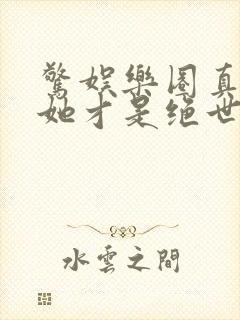 驚娛樂圈真
她才是绝世
水雲之間